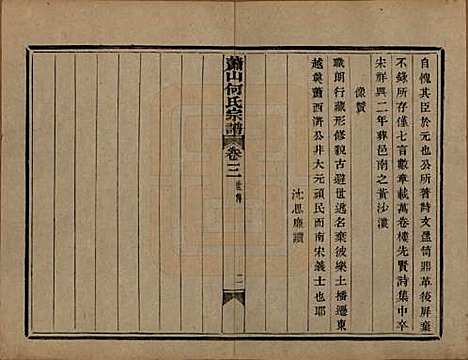 自愧其臣於元也公所著詩文盈筒鼎革後屏棄
不錄所存僅七言數章載萬卷樓先賢詩集中卒
宋祥興二年葬邑南之黃沙
像贊
職朗行藏形修貌古避世逃名棄彼樂土播遷東
越奠蕭西濟公非大元頑民而南宋義士也耶
沈思廉讚
蕭山何氏宗譜
卷三
世傳
二